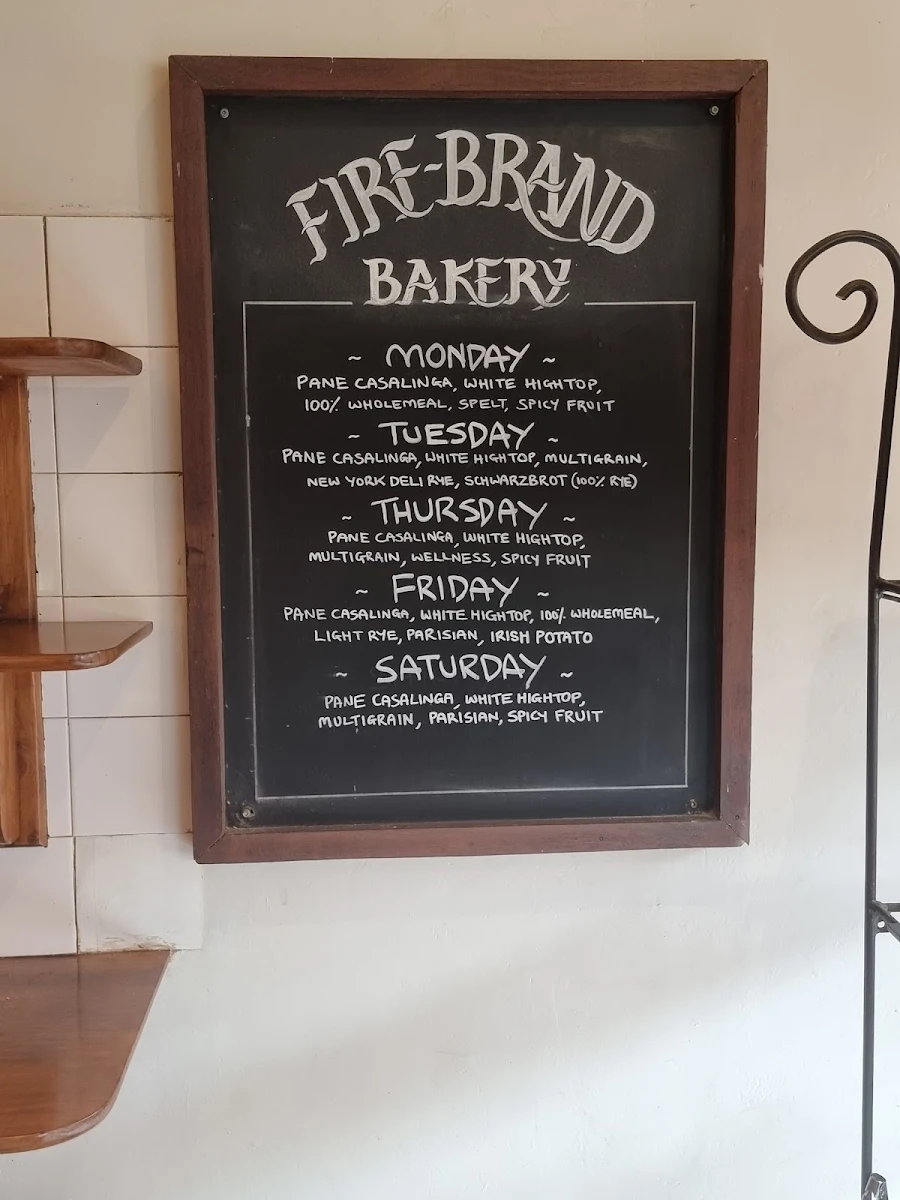 FIRE-BRAND
BAKERY
~ MONDAY ~
PANE CASALINGA, WHITE HIGHTOP,
100% WHOLEMEAL, SPELT, SPICY FRUIT
~ TUESDAY ~
PANE CASALINGA, WHITE HIGHTOP, MULTIGRAIN,
NEW YORK DELI RYE, SCHWARZBROT (100% RYE)
~ THURSDAY ~
PANE CASALINGA, WHITE HIGHTOP,
MULTIGRAIN, WELLNESS, SPICY FRUIT
~ FRIDAY ~
PANE CASALINGA, WHITE HIGHTOP, 100% WHOLEMEAL,
LIGHT RYE, PARISIAN, IRISH POTATO
~ SATURDAY ~
PANE CASALINGA, WHITE HIGHTOP,
MULTIGRAIN, PARISIAN, SPICY FRUIT